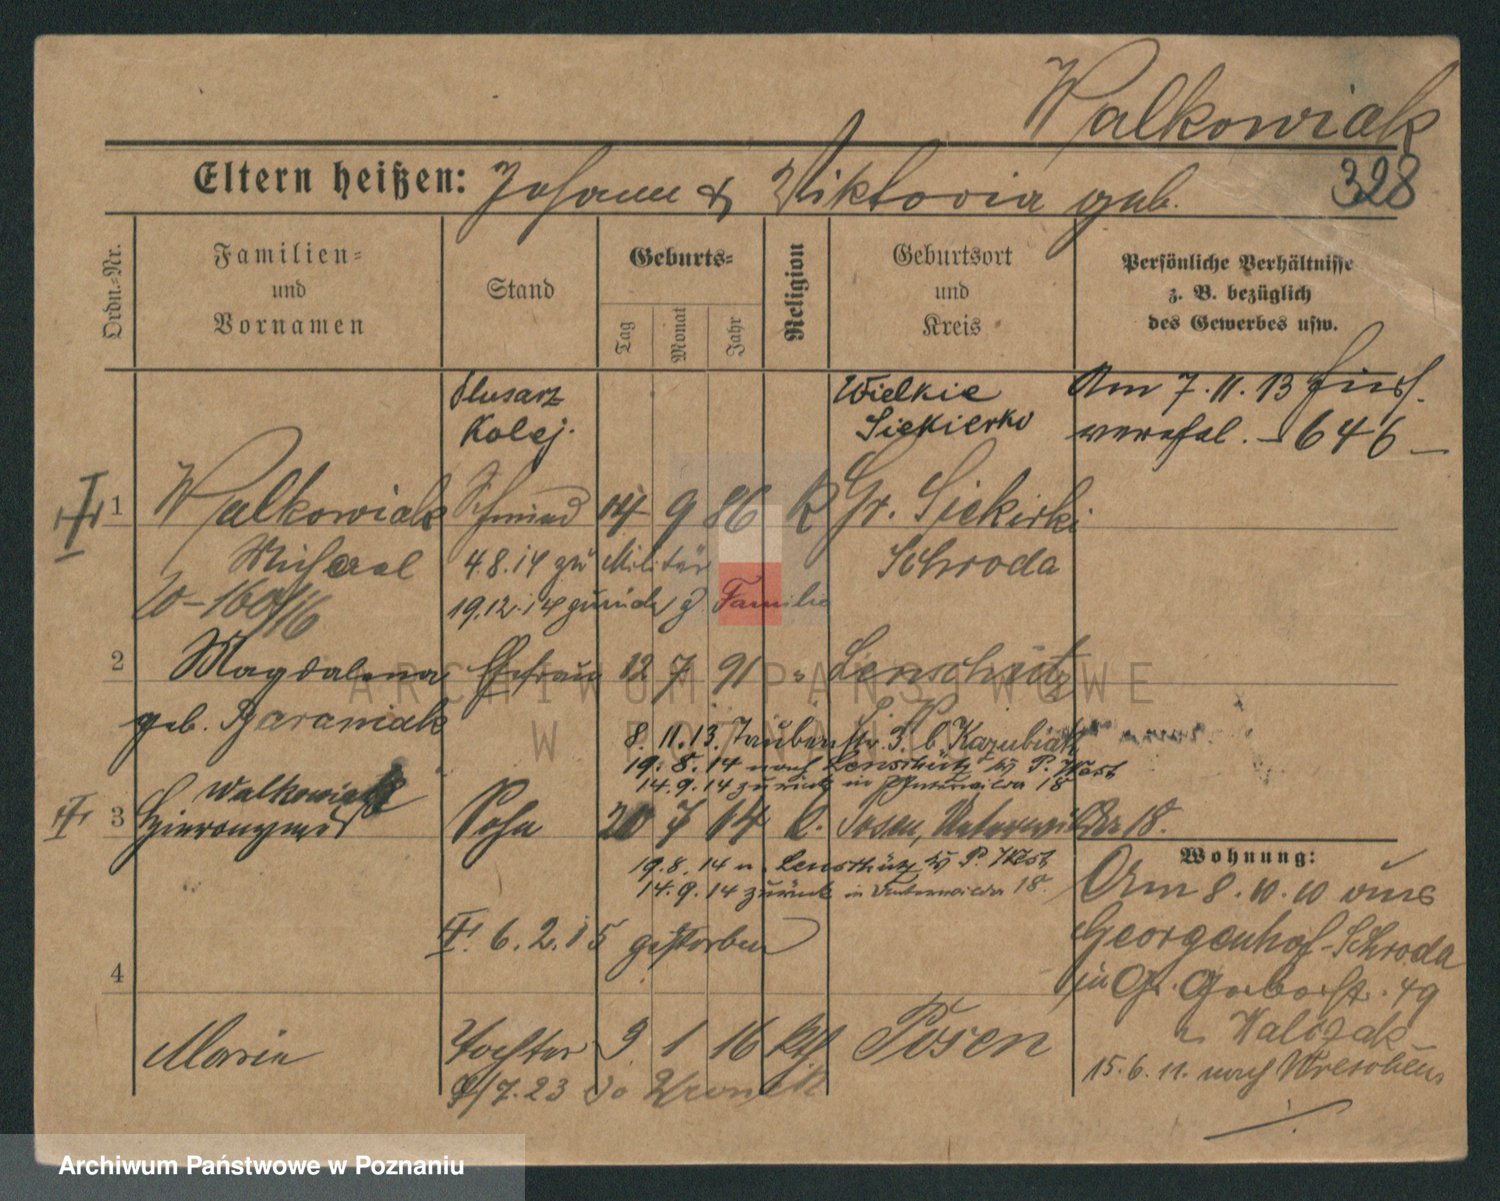 Walkowiak
328
Eltern heißen: Johann & Viktoria geb.
Ordn.-Nr.
Familien-
und
Vornamen
Stand
Geburts-
Tag
Monat
Jahr
Religion
Geburtsort
und
Kreis
Persönliche Verhältnisse
z. B. bezüglich
des Gewerbes usw.
Ślusarz
Kolej.
Wielkie
Siekierki
Am 7.11.13
646
1 Walkowiak Schmied 14 9 86 K Gr. Siekirki
Michael 4.8.14 zu Militär Schroda
19.12.14 zurück z. Familie
2 Magdalena Ehefrau 12 7 91 " Lenschütz
geb. Baraniak
8. 11. 13. Taubenstr. 3. b. Kazubiak
19. 8. 14 nach Lenschütz
14. 9. 14 zurück in Unterwilda 18
Walkowiak
3 Hieronymus Sohn 20 7 14 Posen, Unterwilda 18.
Wohnung:
19. 8. 14 n. Lenschütz
14. 9. 14 zurück in Unterwilda 18.
6. 2. 15 gestorben
Am 8. 10. 10 aus
Georgenhof-Schroda
in Gr. Gerberstr. 49
Walczak
15. 6. 11. nach Wreschen
4
Maria Tochter 9 1 16 kth Posen
7. 23
ARCHIWUM PAŃSTWOWE
W POZNANIU
Archiwum Państwowe w Poznaniu